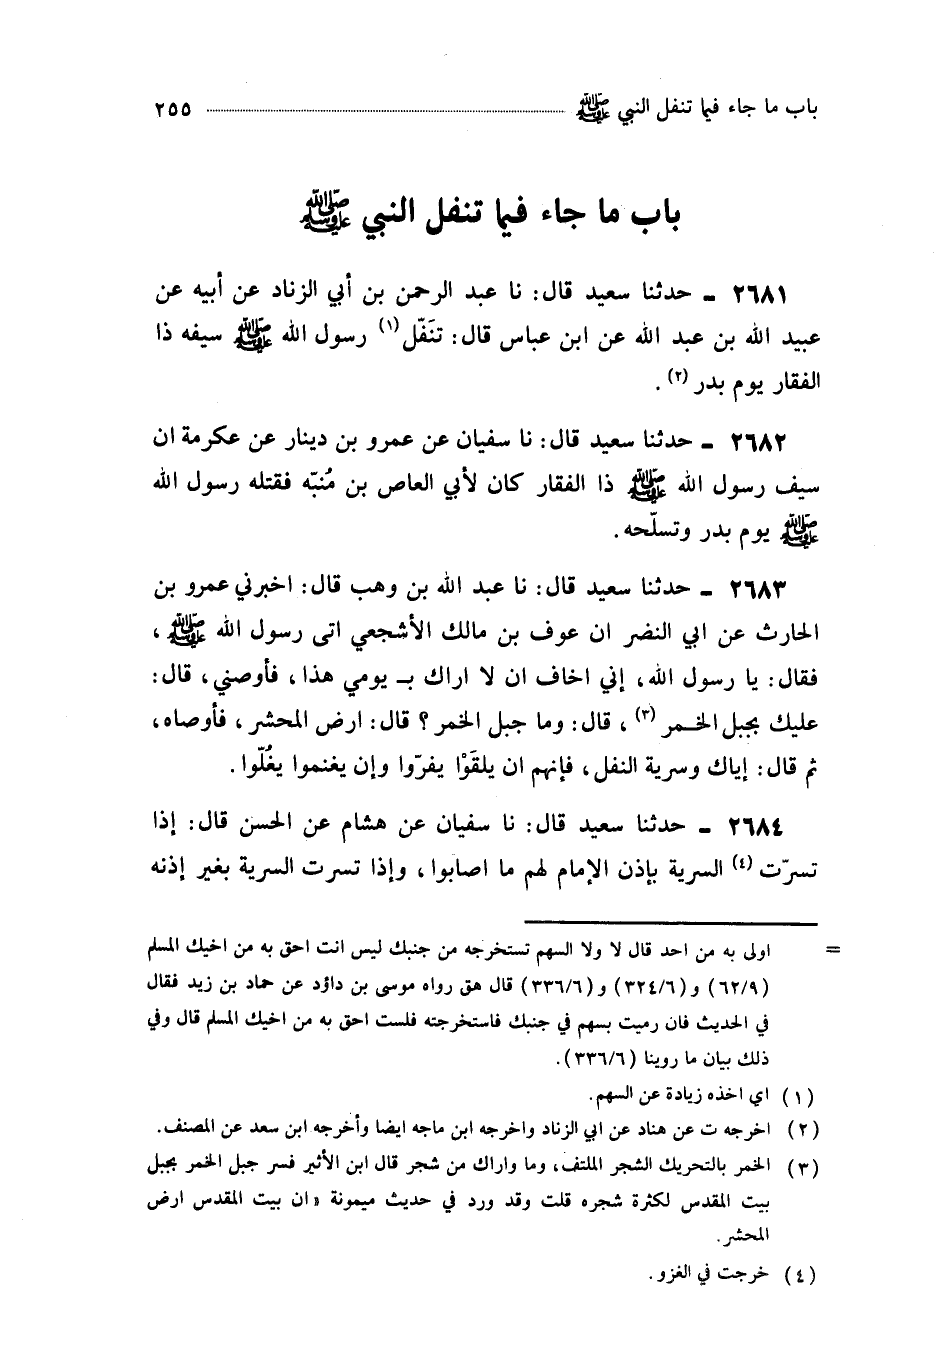 باب ما جاء فيما تنفل النبي ﷺ ٢٥٥
باب ما جاء فيما تنفل النبي ﷺ
٢٦٨١ ـ حدثنا سعيد قال: نا عبد الرحمن بن أبي الزناد عن أبيه عن
عبيد الله بن عبد الله عن ابن عباس قال: تنَفّل (١) رسول الله ﷺ سيفه ذا
الفقار يوم بدر (٢) .
٢٦٨٢ ـ حدثنا سعيد قال: نا سفيان عن عمرو بن دينار عن عكرمة ان
سيف رسول الله ﷺ ذا الفقار كان لأبي العاص بن مُنبّه فقتله رسول الله
ﷺ يوم بدر وتسلّحه.
٢٦٨٣ ـ حدثنا سعيد قال: نا عبد الله بن وهب قال: اخبرني عمرو بن
الحارث عن ابي النضر ان عوف بن مالك الأشجعي اتى رسول الله ﷺ،
فقال: يا رسول الله، إني اخاف ان لا اراك بـ يومي هذا، فأوصني، قال:
عليك بجبل الخـمر (٣)، قال: وما جبل الخمر؟ قال: ارض المحشر، فأوصاه،
ثم قال: إياك وسرية النفل، فإنهم ان يلقَوْا يفرّوا وإن يغنموا يغُلّوا.
٢٦٨٤ ـ حدثنا سعيد قال: نا سفيان عن هشام عن الحسن قال: إذا
تسرّت (٤) السرية بإذن الإمام لهم ما اصابوا، وإذا تسرت السرية بغير إذنه
= اولى به من احد قال لا ولا السهم تستخرجه من جنبك ليس انت احق به من اخيك المسلم
(٦٢/٩) و (٣٢٤/٦) و(٣٣٦/٦) قال هق رواه موسى بن داؤد عن حماد بن زيد فقال
في الحديث فان رميت بسهم في جنبك فاستخرجته فلست احق به من اخيك المسلم قال وفي
ذلك بيان ما روينا (٣٣٦/٦).
(١) اي اخذه زيادة عن السهم.
(٢) اخرجه ت عن هناد عن ابي الزناد واخرجه ابن ماجه ايضا وأخرجه ابن سعد عن المصنف.
(٣) الخمر بالتحريك الشجر الملتف، وما واراك من شجر قال ابن الأثير فسر جبل الخمر بجبل
بيت المقدس لكثرة شجره قلت وقد ورد في حديث ميمونة «ان بيت المقدس ارض
المحشر.
(٤) خرجت في الغزو.